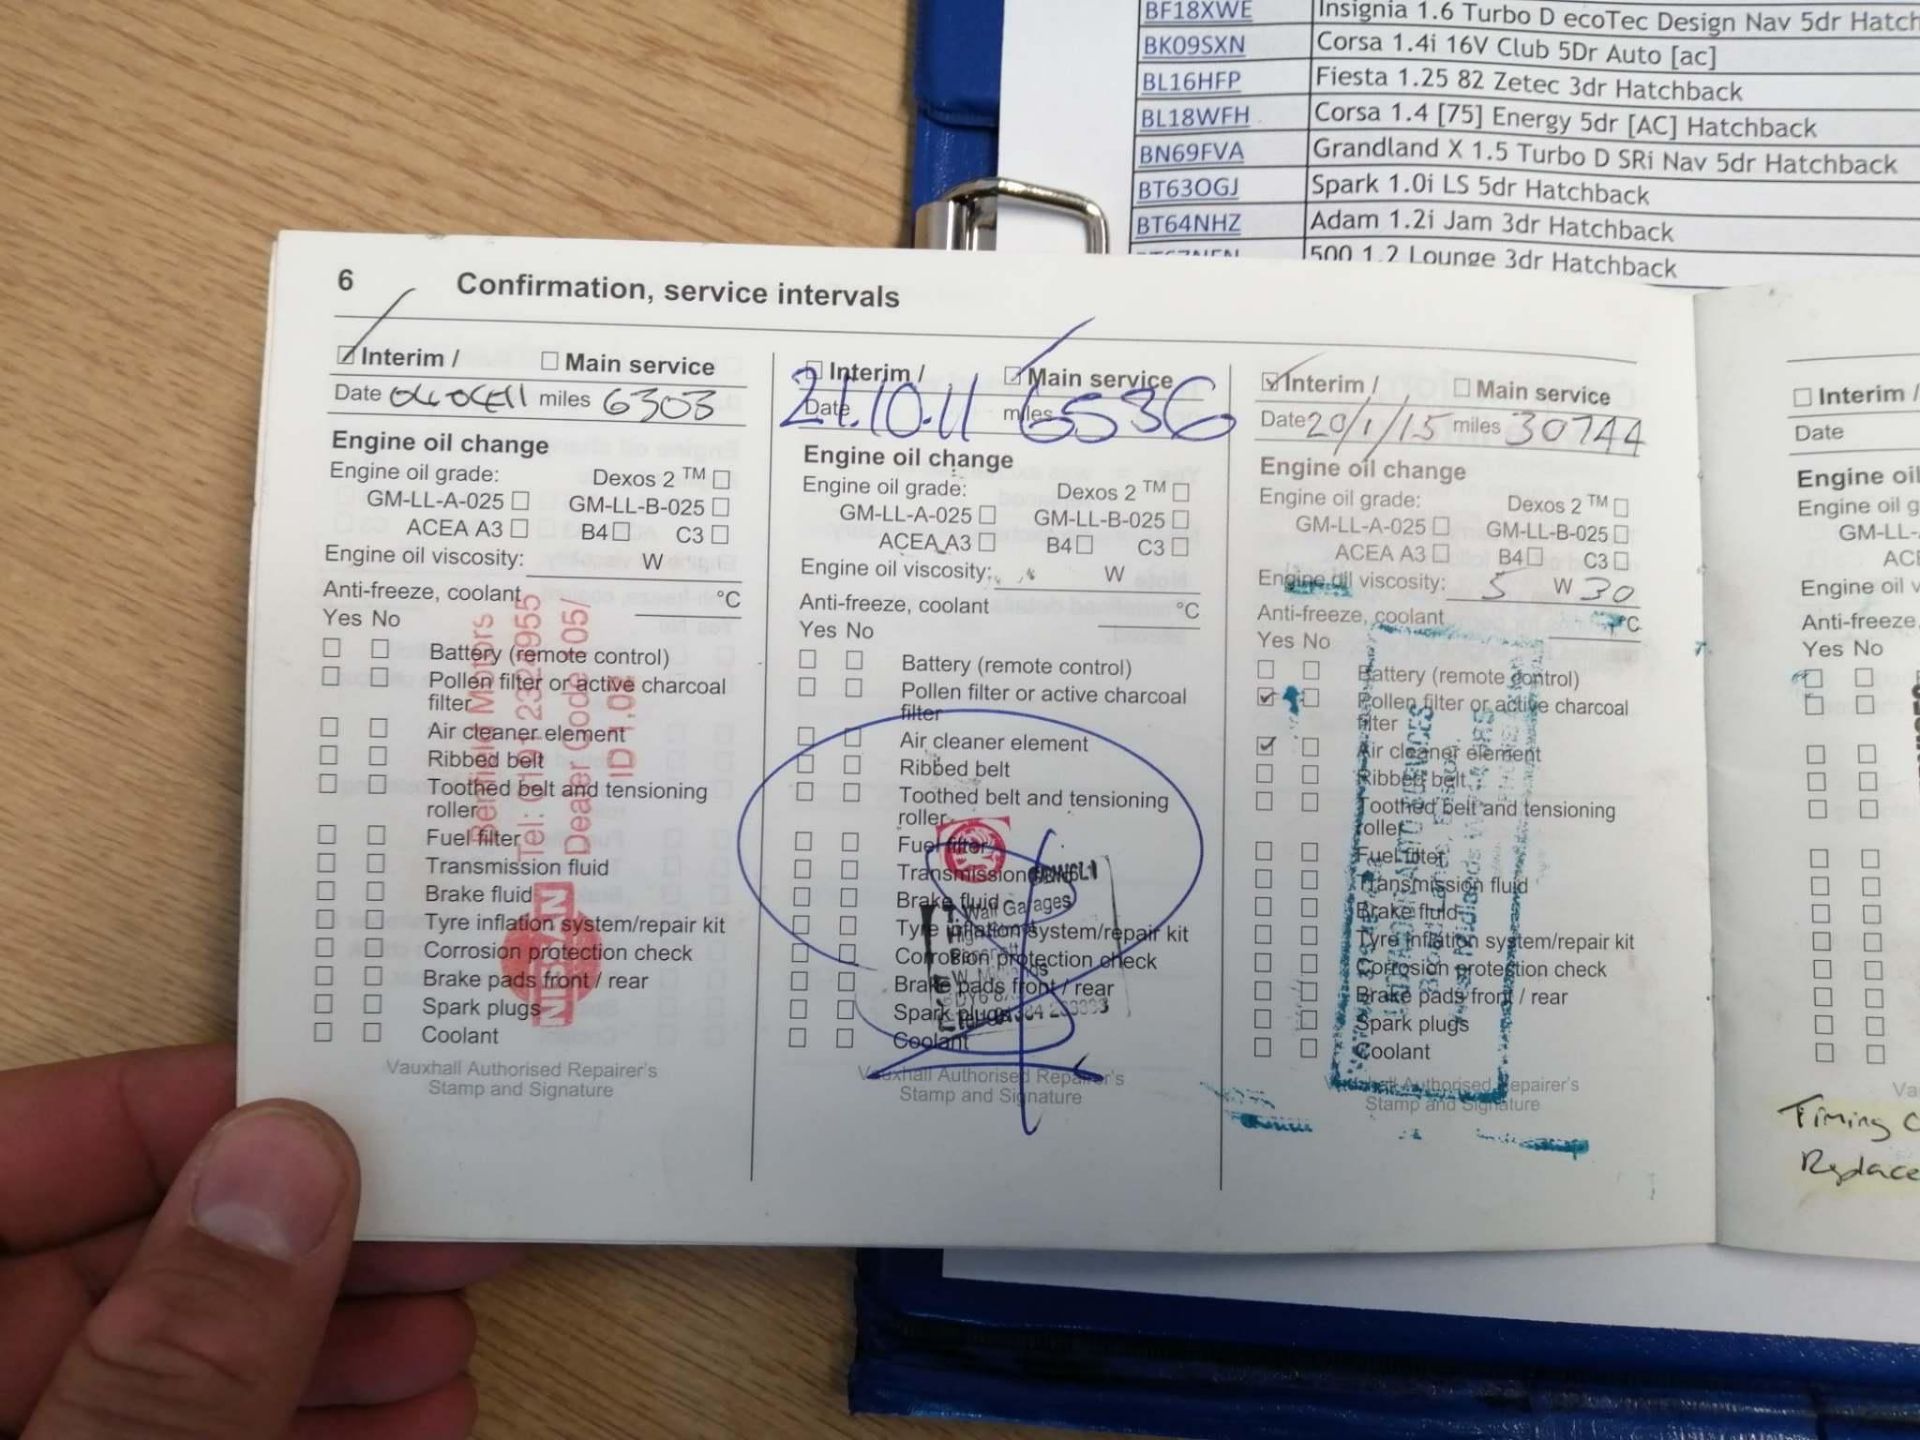 BF18XWE Insignia 1.6 Turbo D ecoTec Design Nav 5dr Hatch
BK09SXN Corsa 1.4i 16V Club 5Dr Auto [ac]
BL16HFP Fiesta 1.25 82 Zetec 3dr Hatchback
BL18WFH Corsa 1.4 [75] Energy 5dr [AC] Hatchback
BN69FVA Grandland X 1.5 Turbo D SRi Nav 5dr Hatchback
BT63OGJ Spark 1.0i LS 5dr Hatchback
BT64NHZ Adam 1.2i Jam 3dr Hatchback
500 1.2 Lounge 3dr Hatchback
6 Confirmation, service intervals
Interim / Main service
Date miles 6303
Engine oil change
Engine oil grade: Dexos 2 TM
GM-LL-A-025 GM-LL-B-025
ACEA A3 B4 C3
Engine oil viscosity: W
Anti-freeze, coolant °C
Yes No
Battery (remote control)
Pollen filter or active charcoal
filter
Air cleaner element
Ribbed belt
Toothed belt and tensioning
roller
Fuel filter
Transmission fluid
Brake fluid
Tyre inflation system/repair kit
Corrosion protection check
Brake pads front / rear
Spark plugs
Coolant
Vauxhall Authorised Repairer's
Stamp and Signature
Benfield Motors
Tel: 0191 2324955
Dealer Code 105/
Interim / Main service
Date 21.10.11 miles 6536
Engine oil change
Engine oil grade: Dexos 2 TM
GM-LL-A-025 GM-LL-B-025
ACEA A3 B4 C3
Engine oil viscosity: W
Anti-freeze, coolant °C
Yes No
Battery (remote control)
Pollen filter or active charcoal
filter
Air cleaner element
Ribbed belt
Toothed belt and tensioning
roller
Fuel filter
Transmission
Brake fluid
Tyre inflation system/repair kit
Corrosion protection check
Brake pads front / rear
Spark plugs
Coolant
Vauxhall Authorised Repairer's
Stamp and Signature
Wall Garages
Interim / Main service
Date 20/1/15 miles 30744
Engine oil change
Engine oil grade: Dexos 2 TM
GM-LL-A-025 GM-LL-B-025
ACEA A3 B4 C3
Engine oil viscosity: 5 W 30
Anti-freeze, coolant °C
Yes No
Battery (remote control)
Pollen filter or active charcoal
filter
Air cleaner element
Ribbed belt
Toothed belt and tensioning
roller
Fuel filter
Transmission fluid
Brake fluid
Tyre inflation system/repair kit
Corrosion protection check
Brake pads front / rear
Spark plugs
Coolant
Vauxhall Authorised Repairer's
Stamp and Signature
Interim /
Date
Engine oil
Engine oil g
GM-LL-
ACE
Engine oil v
Anti-freeze,
Yes No
Va
Timing C
Replace